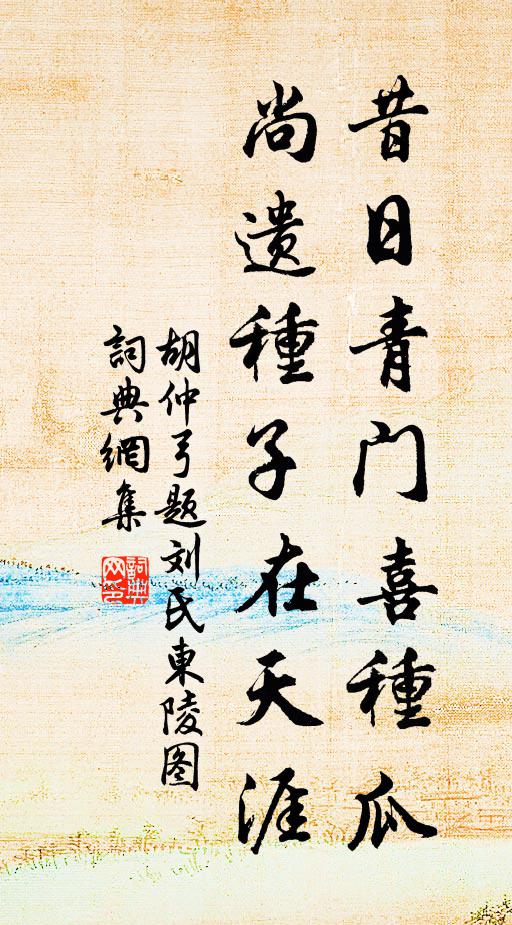 昔日青门喜種瓜
尚遗種子在天涯
胡仲弓题刘氏東陵图
詞典網集
詞典网印